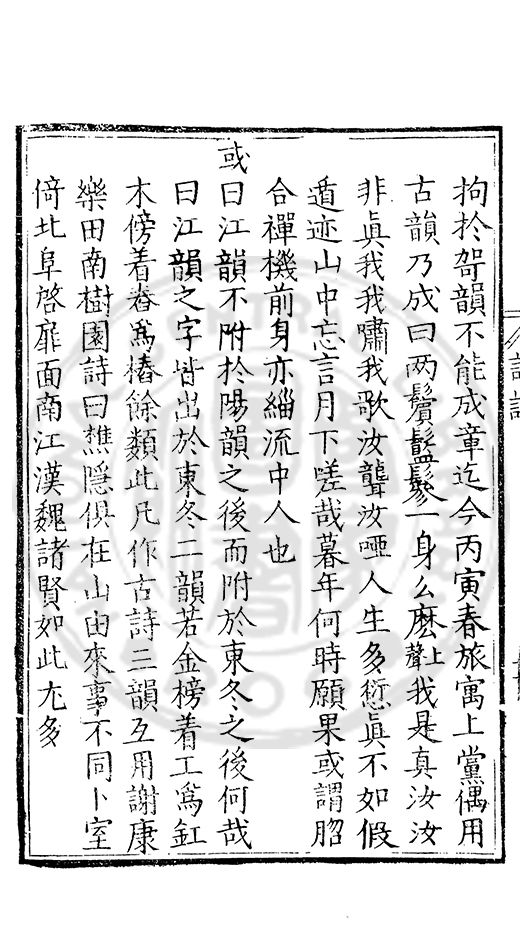 拘於哿韻不能成章迄今丙寅春旅寓上黨偶用
古韻乃成曰两鬢鬅鬆一身么麽上聲我是真汝汝
非眞我我嘯我歌汝聾汝啞人生多愆眞不如假
遁迹山中忘言月下嗟哉暮年何時願果或謂脗
合禪機前身亦緇流中人也
或曰江韻不附於陽韻之後而附於東冬之後何哉
曰江韻之字皆出於東冬二韻若金榜着工爲釭
木傍着舂爲樁餘類此凡作古詩三韻互用謝康
樂田南樹園詩曰樵隱俱在山由來事不同卜室
倚北阜啓扉面南江漢魏諸賢如此尤多